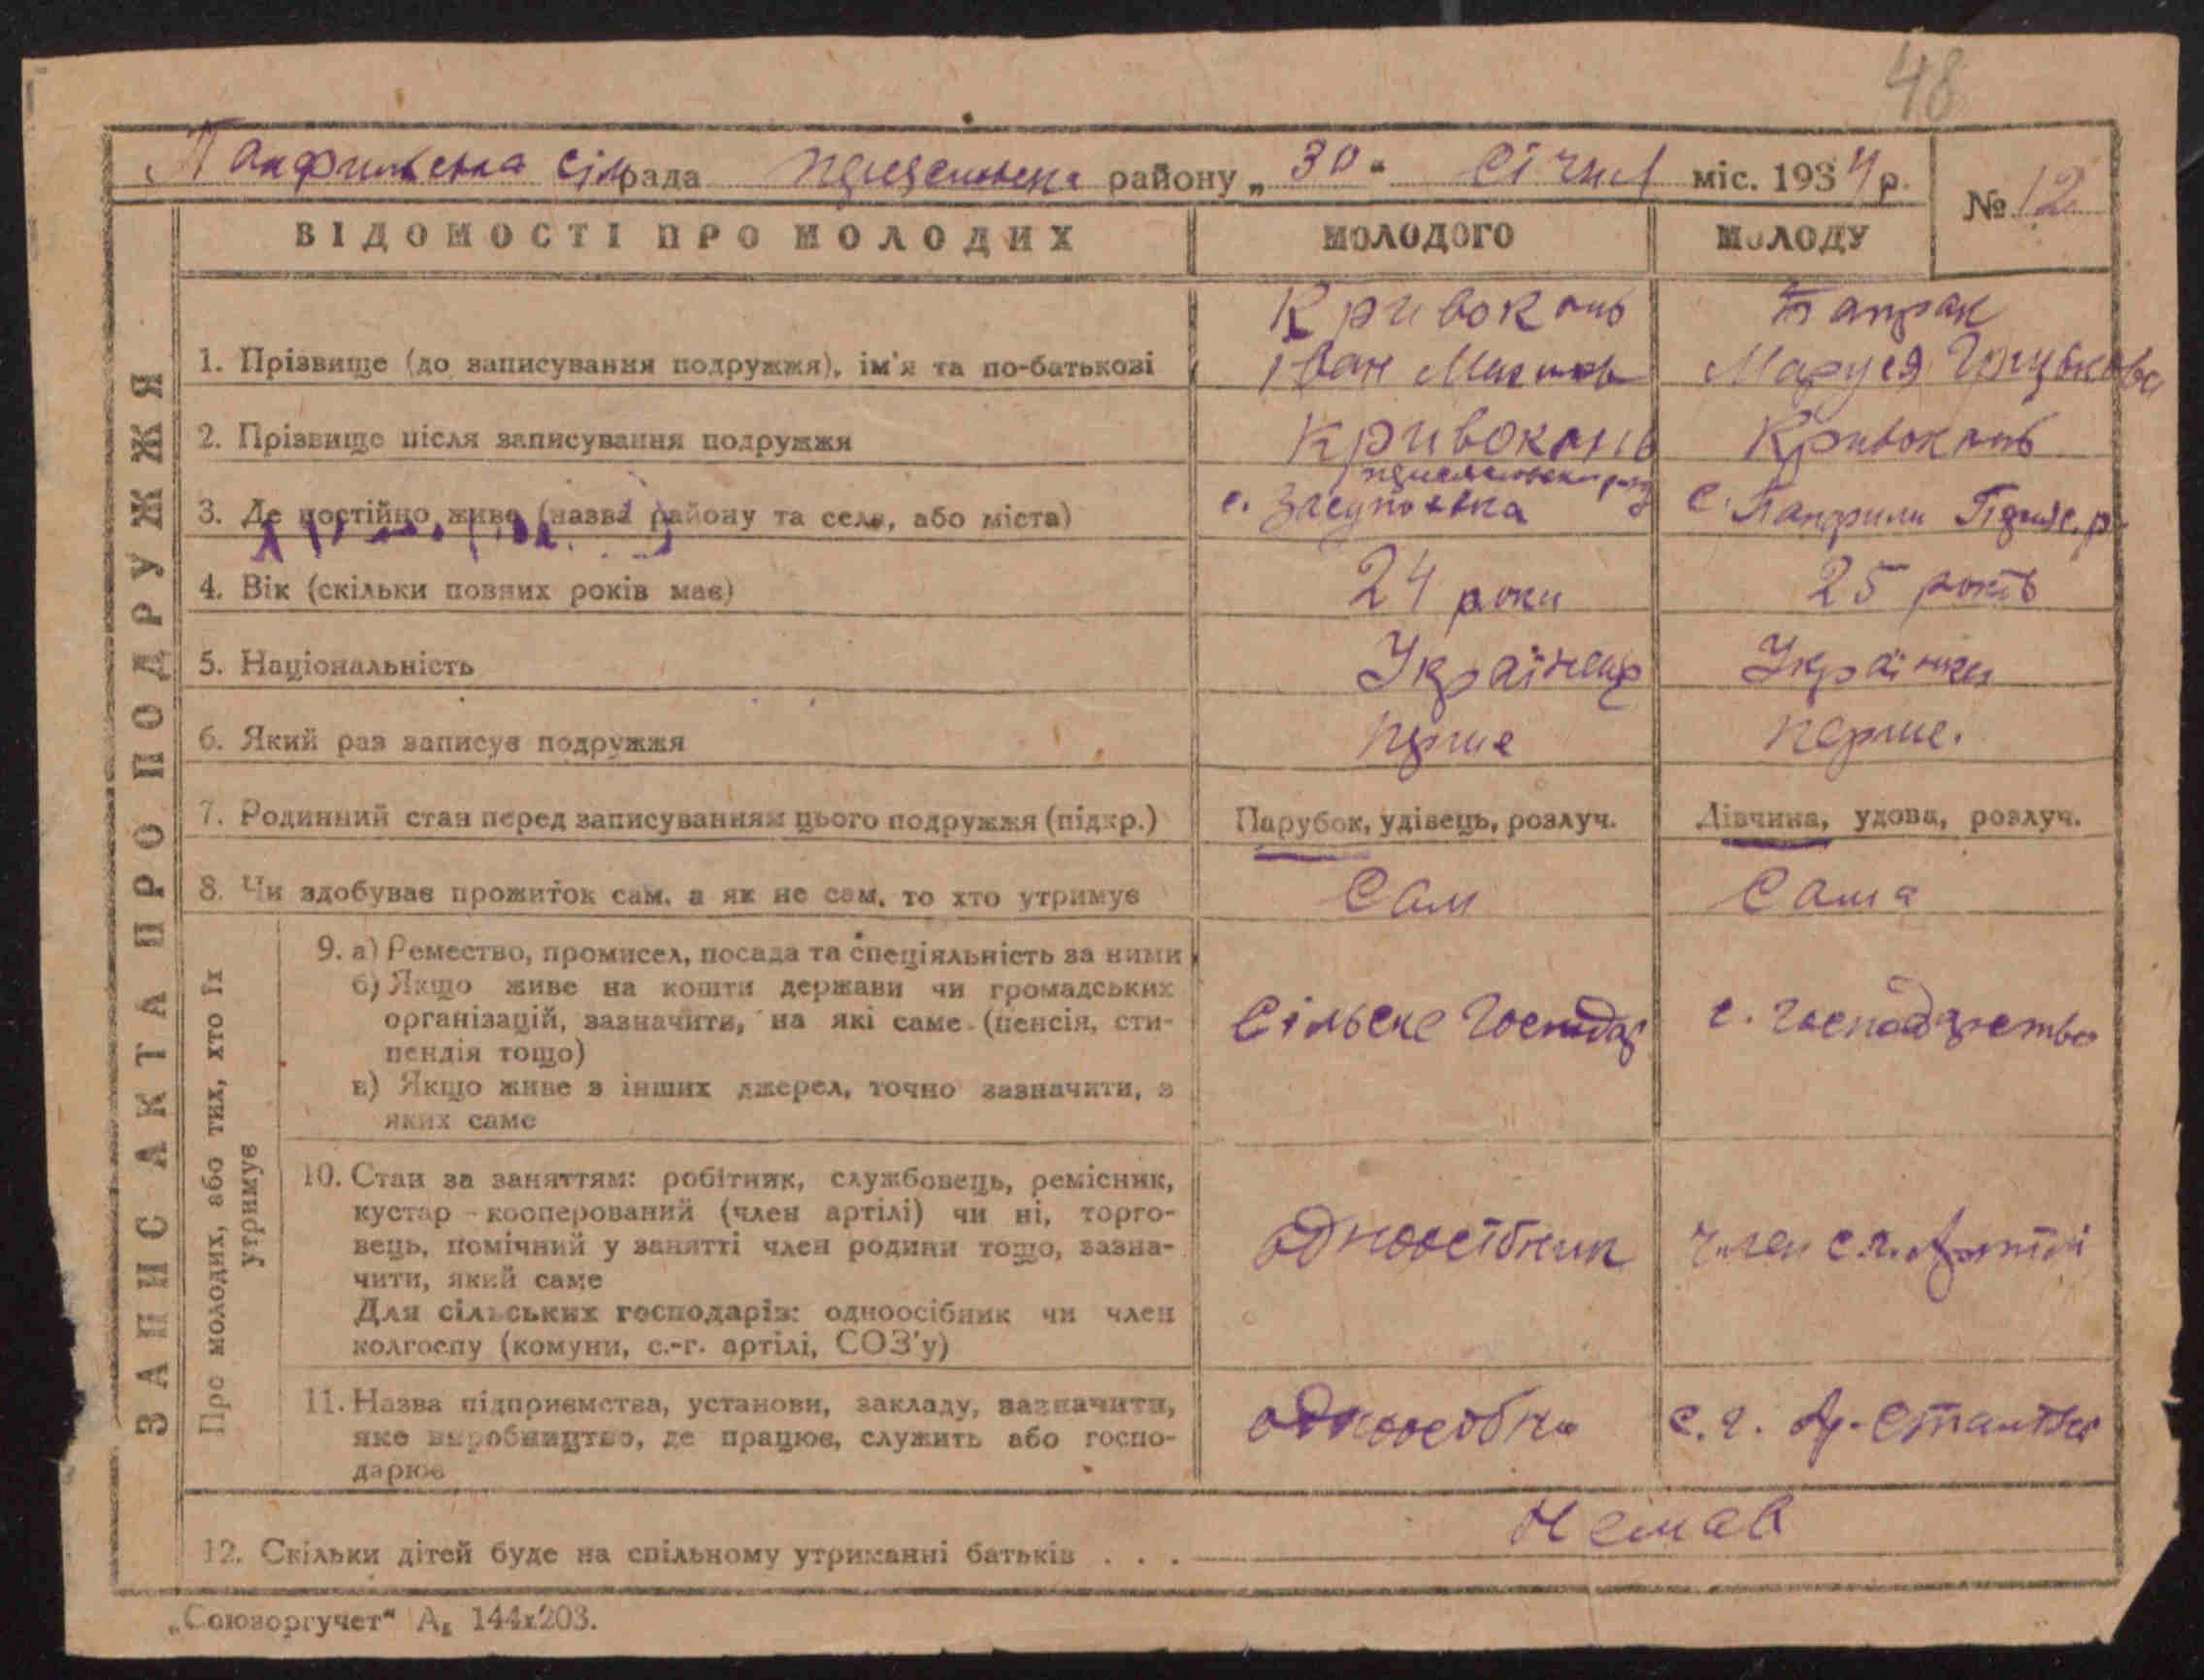 48
Панфильська сільрада району „30“ Січня міс. 1934 р.
№ 12
ВІДОМОСТІ ПРО МОЛОДИХ МОЛОДОГО МОЛОДУ
ЗАПИС АКТА ПРО ПОДРУЖЖЯ
1. Прізвище (до записування подружжя), ім'я та по-батькові
Кривокінь
Іван
Маруся Грицьківна
2. Прізвище після записування подружжя Кривокінь Кривокінь
3. Де постійно живе (назва району та села, або міста)
с. Засупоївка с. Панфили
4. Вік (скільки повних років має) 24 роки 25 років
5. Національність Українець Українка
6. Який раз записує подружжя перше перше.
7. Родинний стан перед записуванням цього подружжя (підкр.) Парубок, удівець, розлуч. Дівчина, удова, розлуч.
8. Чи здобуває прожиток сам, а як не сам, то хто утримує Сам Сама
Про молодих, або тих, хто їх
утримує
9. а) Ремество, промисел, посада та спеціяльність за ними
б) Якщо живе на кошти держави чи громадських
організацій, зазначити, на які саме (пенсія, сти-
пендія тощо)
в) Якщо живе з інших джерел, точно зазначити, з
яких саме
Сільське господар с. господарство
10. Стан за заняттям: робітник, службовець, ремісник,
кустар - кооперований (член артілі) чи ні, торго-
вець, помічний у занятті член родини тощо, зазна-
чити, який саме
Для сільських господарів: одноосібник чи член
колгоспу (комуни, с.-г. артілі, СОЗ'у)
одноосібник член с.г. Артілі
11. Назва підприємства, установи, закладу, зазначити,
яке виробництво, де працює, служить або госпо-
дарює
одноосібник с. г. Ар.
12. Скільки дітей буде на спільному утриманні батьків . . . Немає
„Союзоргучет“ А₅ 144x203.